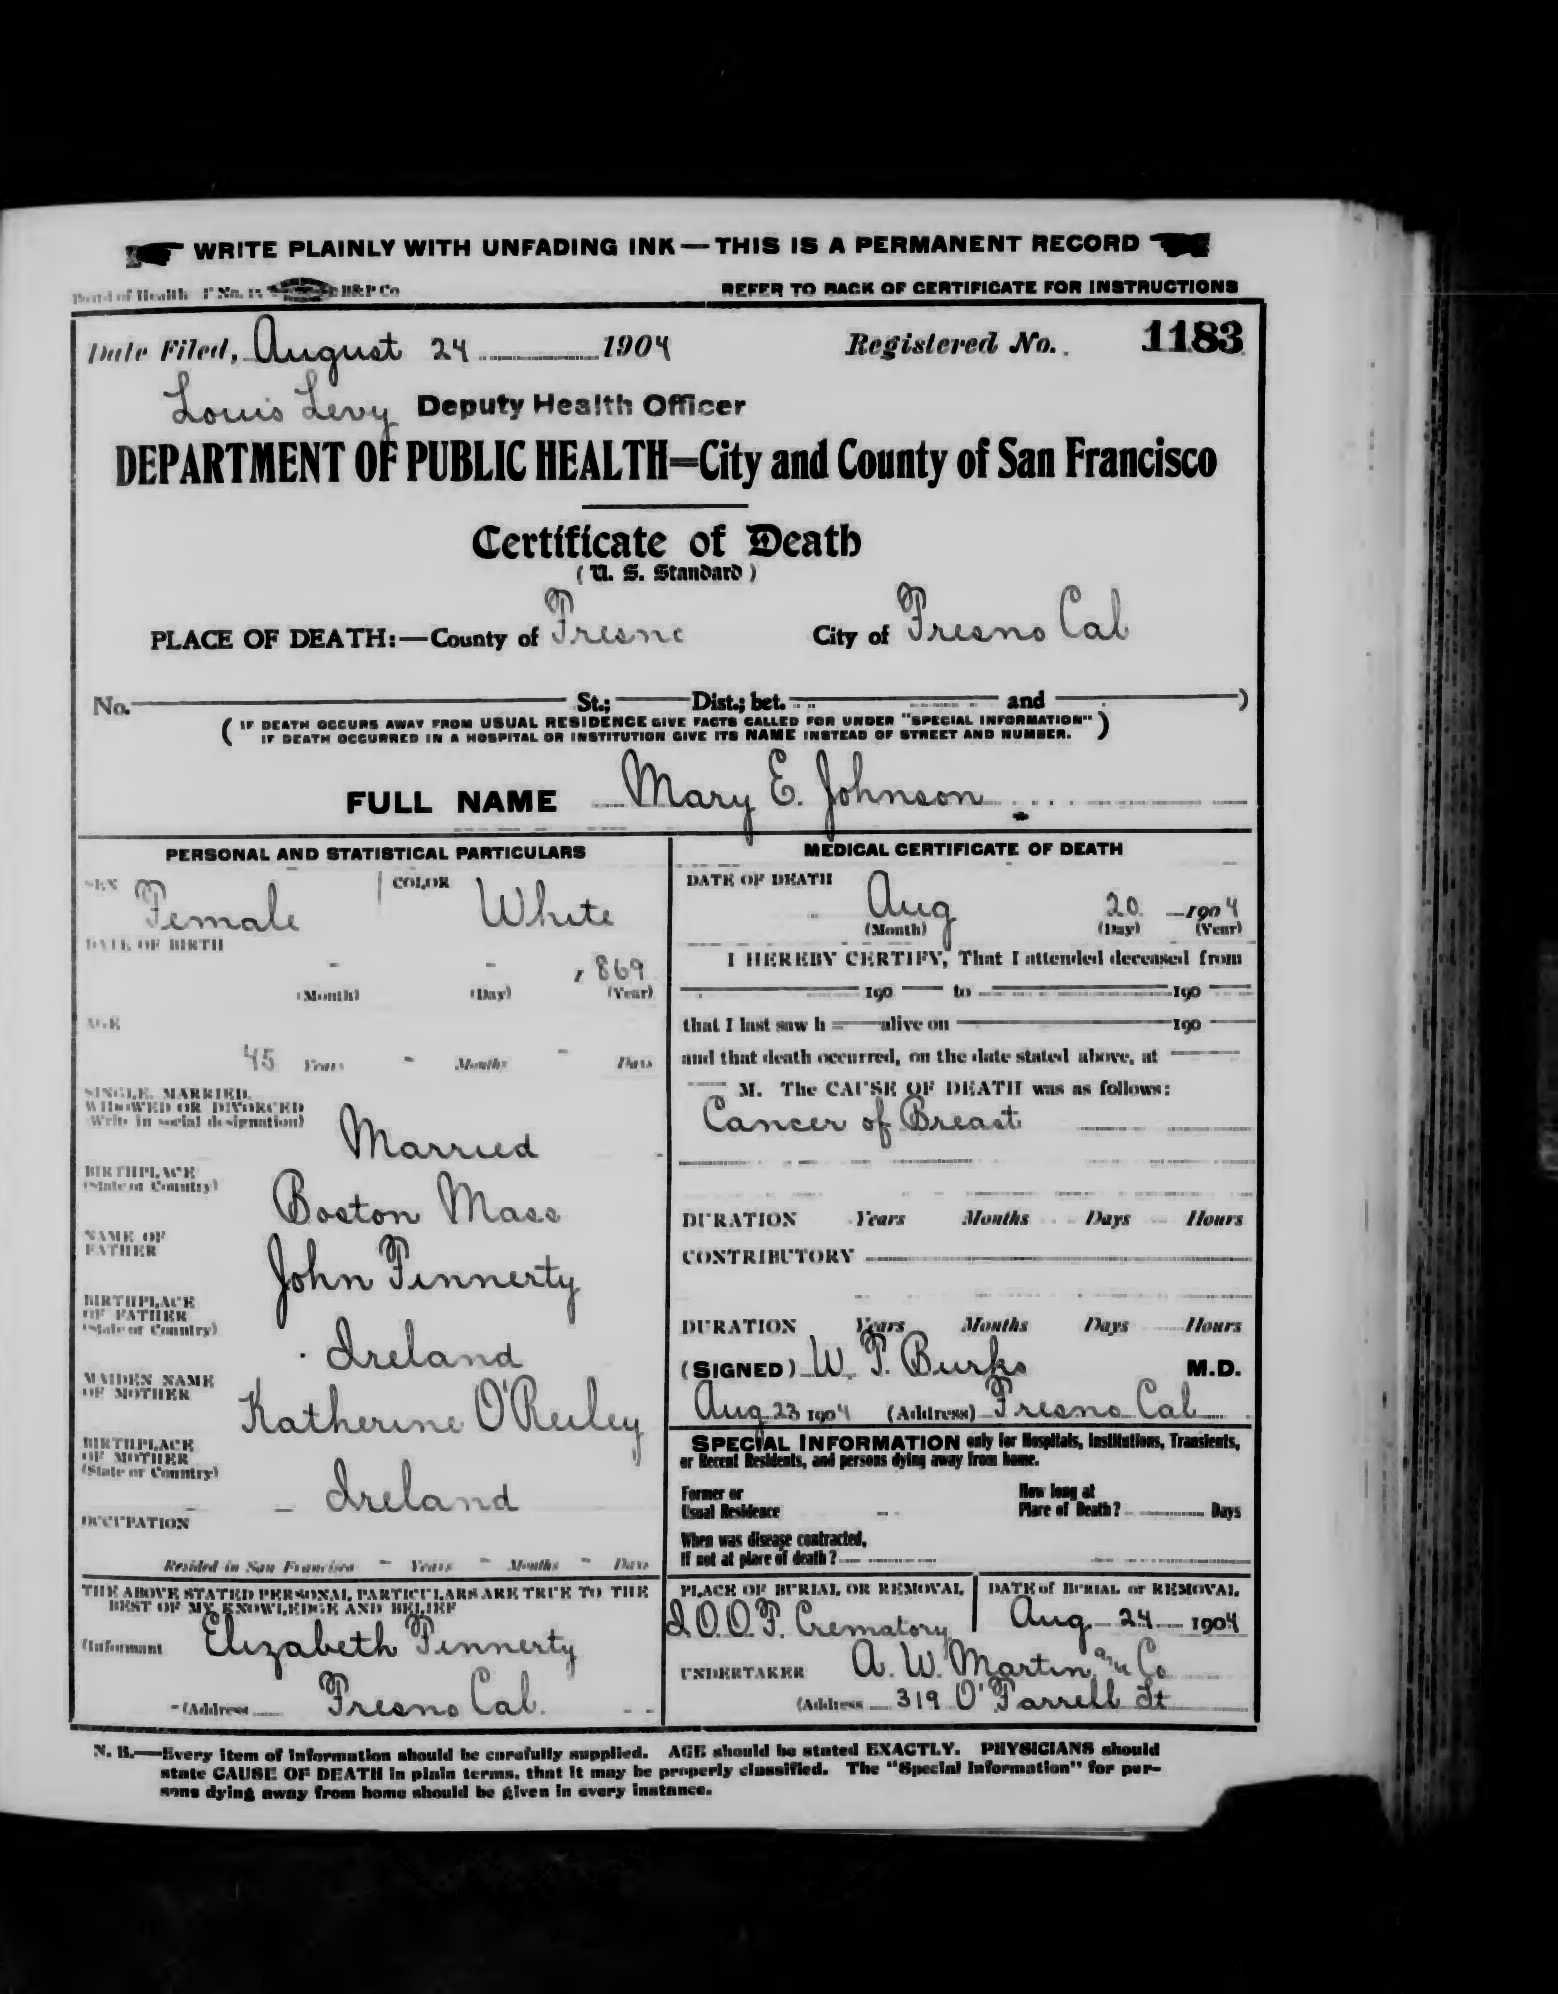 WRITE PLAINLY WITH UNFADING INK—THIS IS A PERMANENT RECORD
Board of Health F No. B&P Co
REFER TO BACK OF CERTIFICATE FOR INSTRUCTIONS
Date Filed, August 24 1904 Registered No. 1183
Louis Levy Deputy Health Officer
DEPARTMENT OF PUBLIC HEALTH=City and County of San Francisco
Certificate of Death
( U. S. Standard )
PLACE OF DEATH:—County of Fresno City of Fresno Cal
No. St.; Dist.; bet. and )
( IF DEATH OCCURS AWAY FROM USUAL RESIDENCE GIVE FACTS CALLED FOR UNDER "SPECIAL INFORMATION" )
IF DEATH OCCURRED IN A HOSPITAL OR INSTITUTION GIVE ITS NAME INSTEAD OF STREET AND NUMBER.
FULL NAME Mary E. Johnson
PERSONAL AND STATISTICAL PARTICULARS
SEX Female COLOR White
DATE OF BIRTH
- - , 869
(Month) (Day) (Year)
AGE
45 Years - Months - Days
SINGLE, MARRIED,
WIDOWED OR DIVORCED
(Write in social designation)
Married
BIRTHPLACE
(State or Country)
Boston Mass
NAME OF
FATHER
John Finnerty
BIRTHPLACE
OF FATHER
(State or Country)
Ireland
MAIDEN NAME
OF MOTHER
Katherine O'Reiley
BIRTHPLACE
OF MOTHER
(State or Country)
Ireland
OCCUPATION
Resided in San Francisco - Years - Months - Days
THE ABOVE STATED PERSONAL PARTICULARS ARE TRUE TO THE
BEST OF MY KNOWLEDGE AND BELIEF
(Informant Elizabeth Finnerty
(Address Fresno Cal.
MEDICAL CERTIFICATE OF DEATH
DATE OF DEATH
Aug 20 1904
(Month) (Day) (Year)
I HEREBY CERTIFY, That I attended deceased from
190 to 190
that I last saw h alive on 190
and that death occurred, on the date stated above, at
M. The CAUSE OF DEATH was as follows:
Cancer of Breast
DURATION Years Months Days Hours
CONTRIBUTORY
DURATION Years Months Days Hours
(SIGNED) W. P. Burks M.D.
Aug 23 1904 (Address) Fresno Cal
SPECIAL INFORMATION only for Hospitals, Institutions, Transients,
or Recent Residents, and persons dying away from home.
Former or
Usual Residence
How long at
Place of Death? Days
When was disease contracted,
If not at place of death?
PLACE OF BURIAL OR REMOVAL
I.O.O.F. Crematory
DATE of BURIAL or REMOVAL
Aug 24 1904
UNDERTAKER A. W. Martin Co
(Address 319 O'Farrell St
N. B.—Every item of information should be carefully supplied. AGE should be stated EXACTLY. PHYSICIANS should
state CAUSE OF DEATH in plain terms, that it may be properly classified. The "Special Information" for per-
sons dying away from home should be given in every instance.